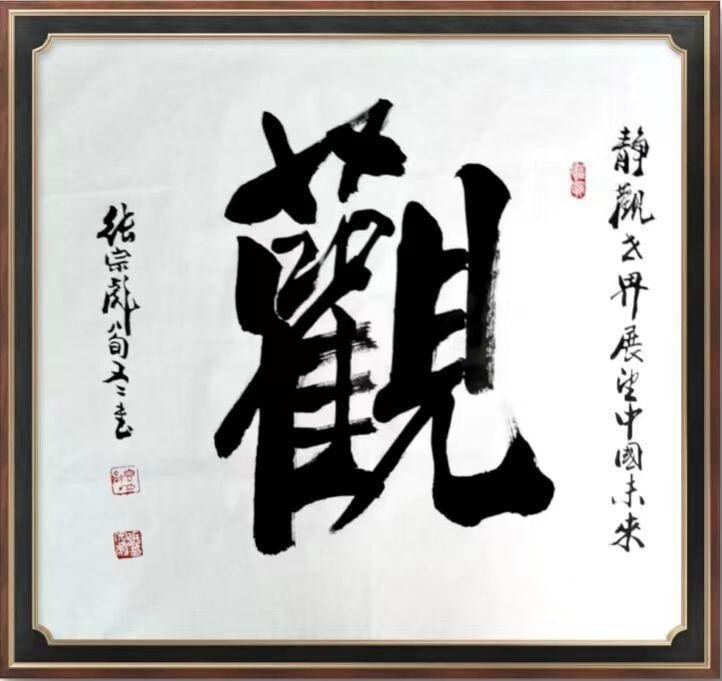 静觀世界展望中國未來
觀
张宗彪八旬又二书